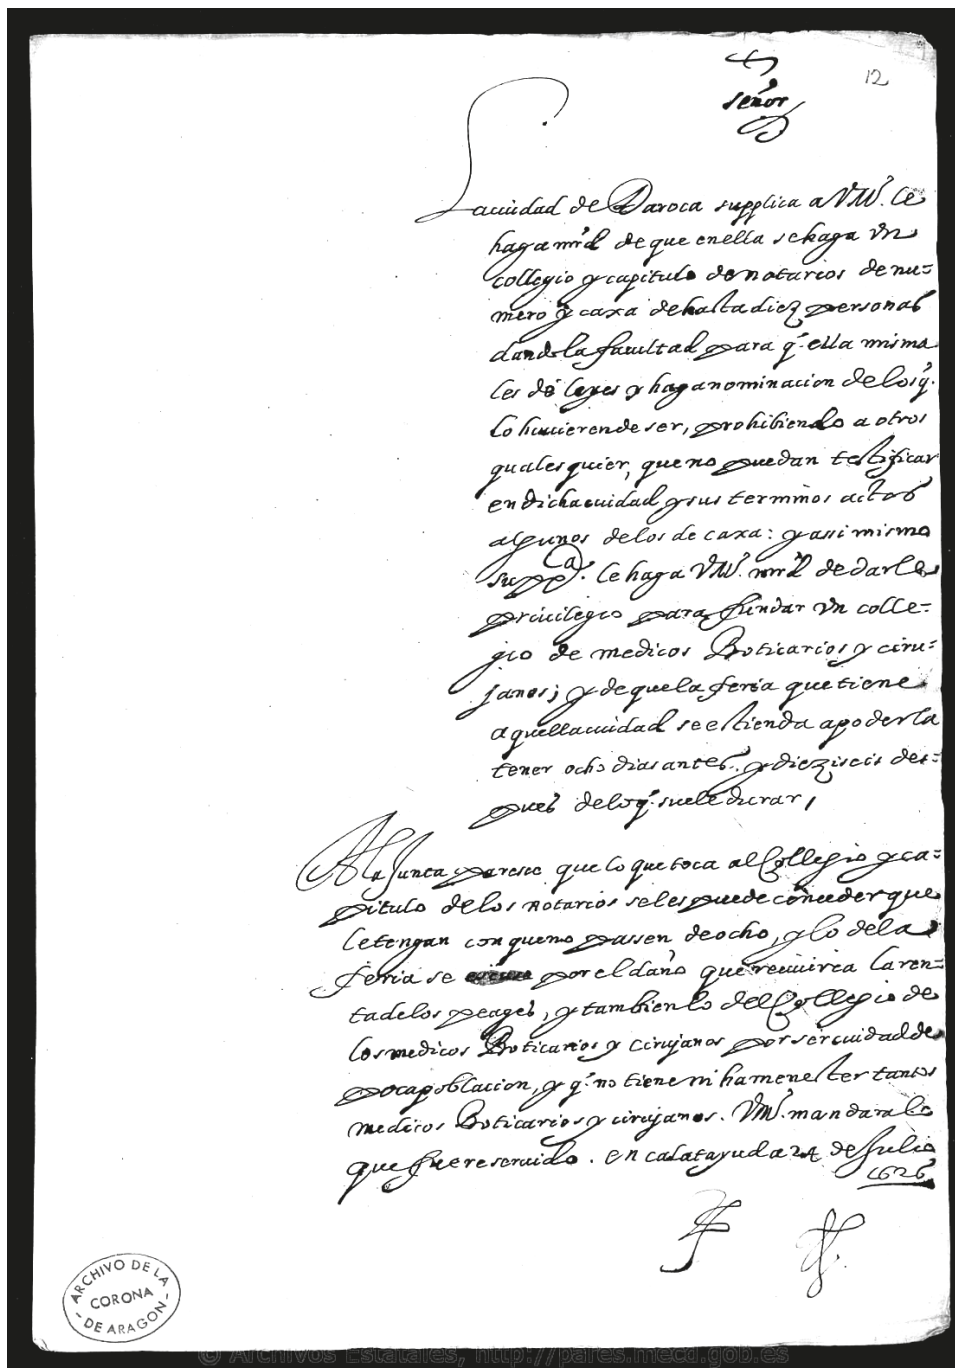 12
señor
La ciudad de Daroca supplica a VM. le
haga mrd de que en ella se haga vn
collegio y capitulo de notarios de nu=
mero y caxa de hasta diez personas
dandola facultad para q. ella misma
les dé leyes y haga nominacion de los q.
lo huuieren de ser, prohibiendo a otros
quales quier, que no puedan testificar
en dicha ciudad y sus terminos actos
algunos de los de caxa: y assi mismo
suppca. le haga VM. mrd de darle
priuilegio para fundar vn colle=
gio de medicos Boticarios y ciru=
janos; y de que la feria que tiene
aquella ciudad se estienda a poderla
tener ocho dias antes. y diez i seis des=
pues de lo q. suele durar,
A la Junta parese que lo que toca al Collegio y ca=
pitulo de los notarios se les puede conceder que
le tengan con que no passen de ocho, y lo de la
feria se por el daño que reciuiria la ren=
ta de los peages, y tambien lo del Collegio de
los medicos Boticarios y cirujanos por ser ciudad de
poca poblacion, y q. no tiene ni ha menester tantos
medicos Boticarios y cirujanos. VM. mandara lo
que fuere seruido. en calatayud a 24 de Julio
1626
ARCHIVO DE LA
CORONA
- DE ARAGON -
© Archivos Estatales, http://pares.mecd.gob.es